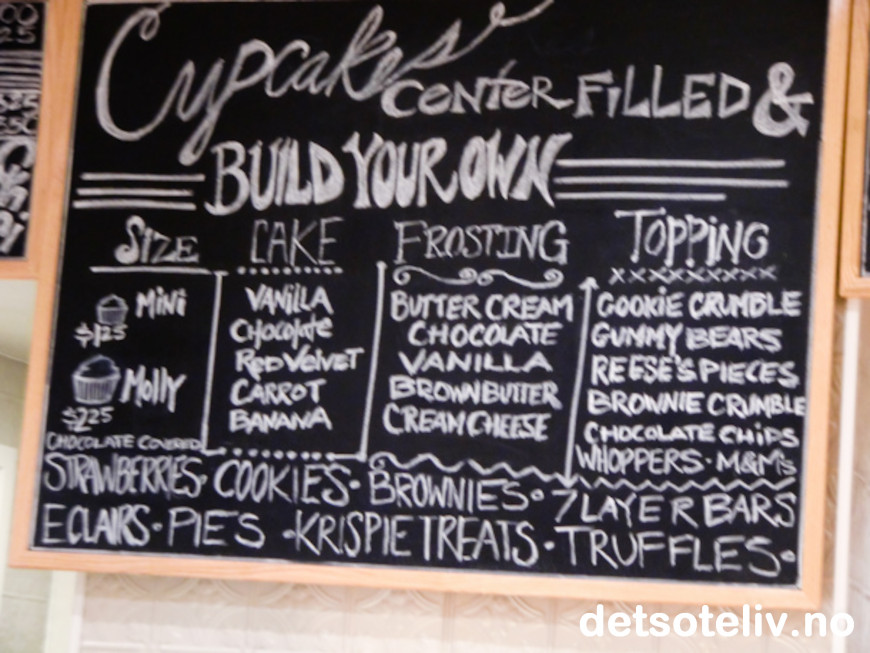 Cupcakes
CENTER FILLED &
BUILD YOUR OWN
SIZE
MiNi
$1.25
Molly
$2.25
CAKE
VANILLA
Chocolate
Red Velvet
CARROT
BANANA
FROSTING
BUTTER CREAM
CHOCOLATE
VANILLA
BROWNBUTTER
CREAM CHEESE
TOPPiNG
COOKIE CRUMBLE
GUMMY BEARS
REESE'S PIECES
BROWNIE CRUMBLE
CHOCOLATE CHiPS
WHOPPERS · M&M's
CHOCOLATE COVERED
STRAWBERRIES · COOKIES · BROWNIES · 7 LAYER BARS
ECLAIRS · PIES · KRISPIE TREATS · TRUFFLES ·
detsoteliv.no